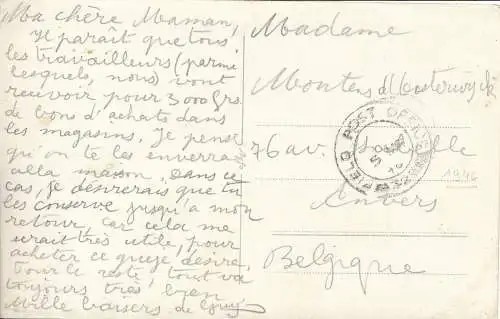 Ma chère Maman,
Il paraît que tous
les travailleurs (parmi
lesquels, nous) vont
recevoir pour 3000 frs.
de bons d'achats dans
les magasins. Je pense
qu'on te les enverra
à la maison. Dans ce
cas, je désirerais que tu
les conserve jusqu'à mon
retour, car cela me
serait très utile, pour
acheter ce que je désire.
Pour le reste tout va
toujours très bien
Mille baisers de Guy
Madame
Montens d'Oosterwyck
76 av Isabelle
Anvers
Belgique
FIELD POST OFFICE
1946